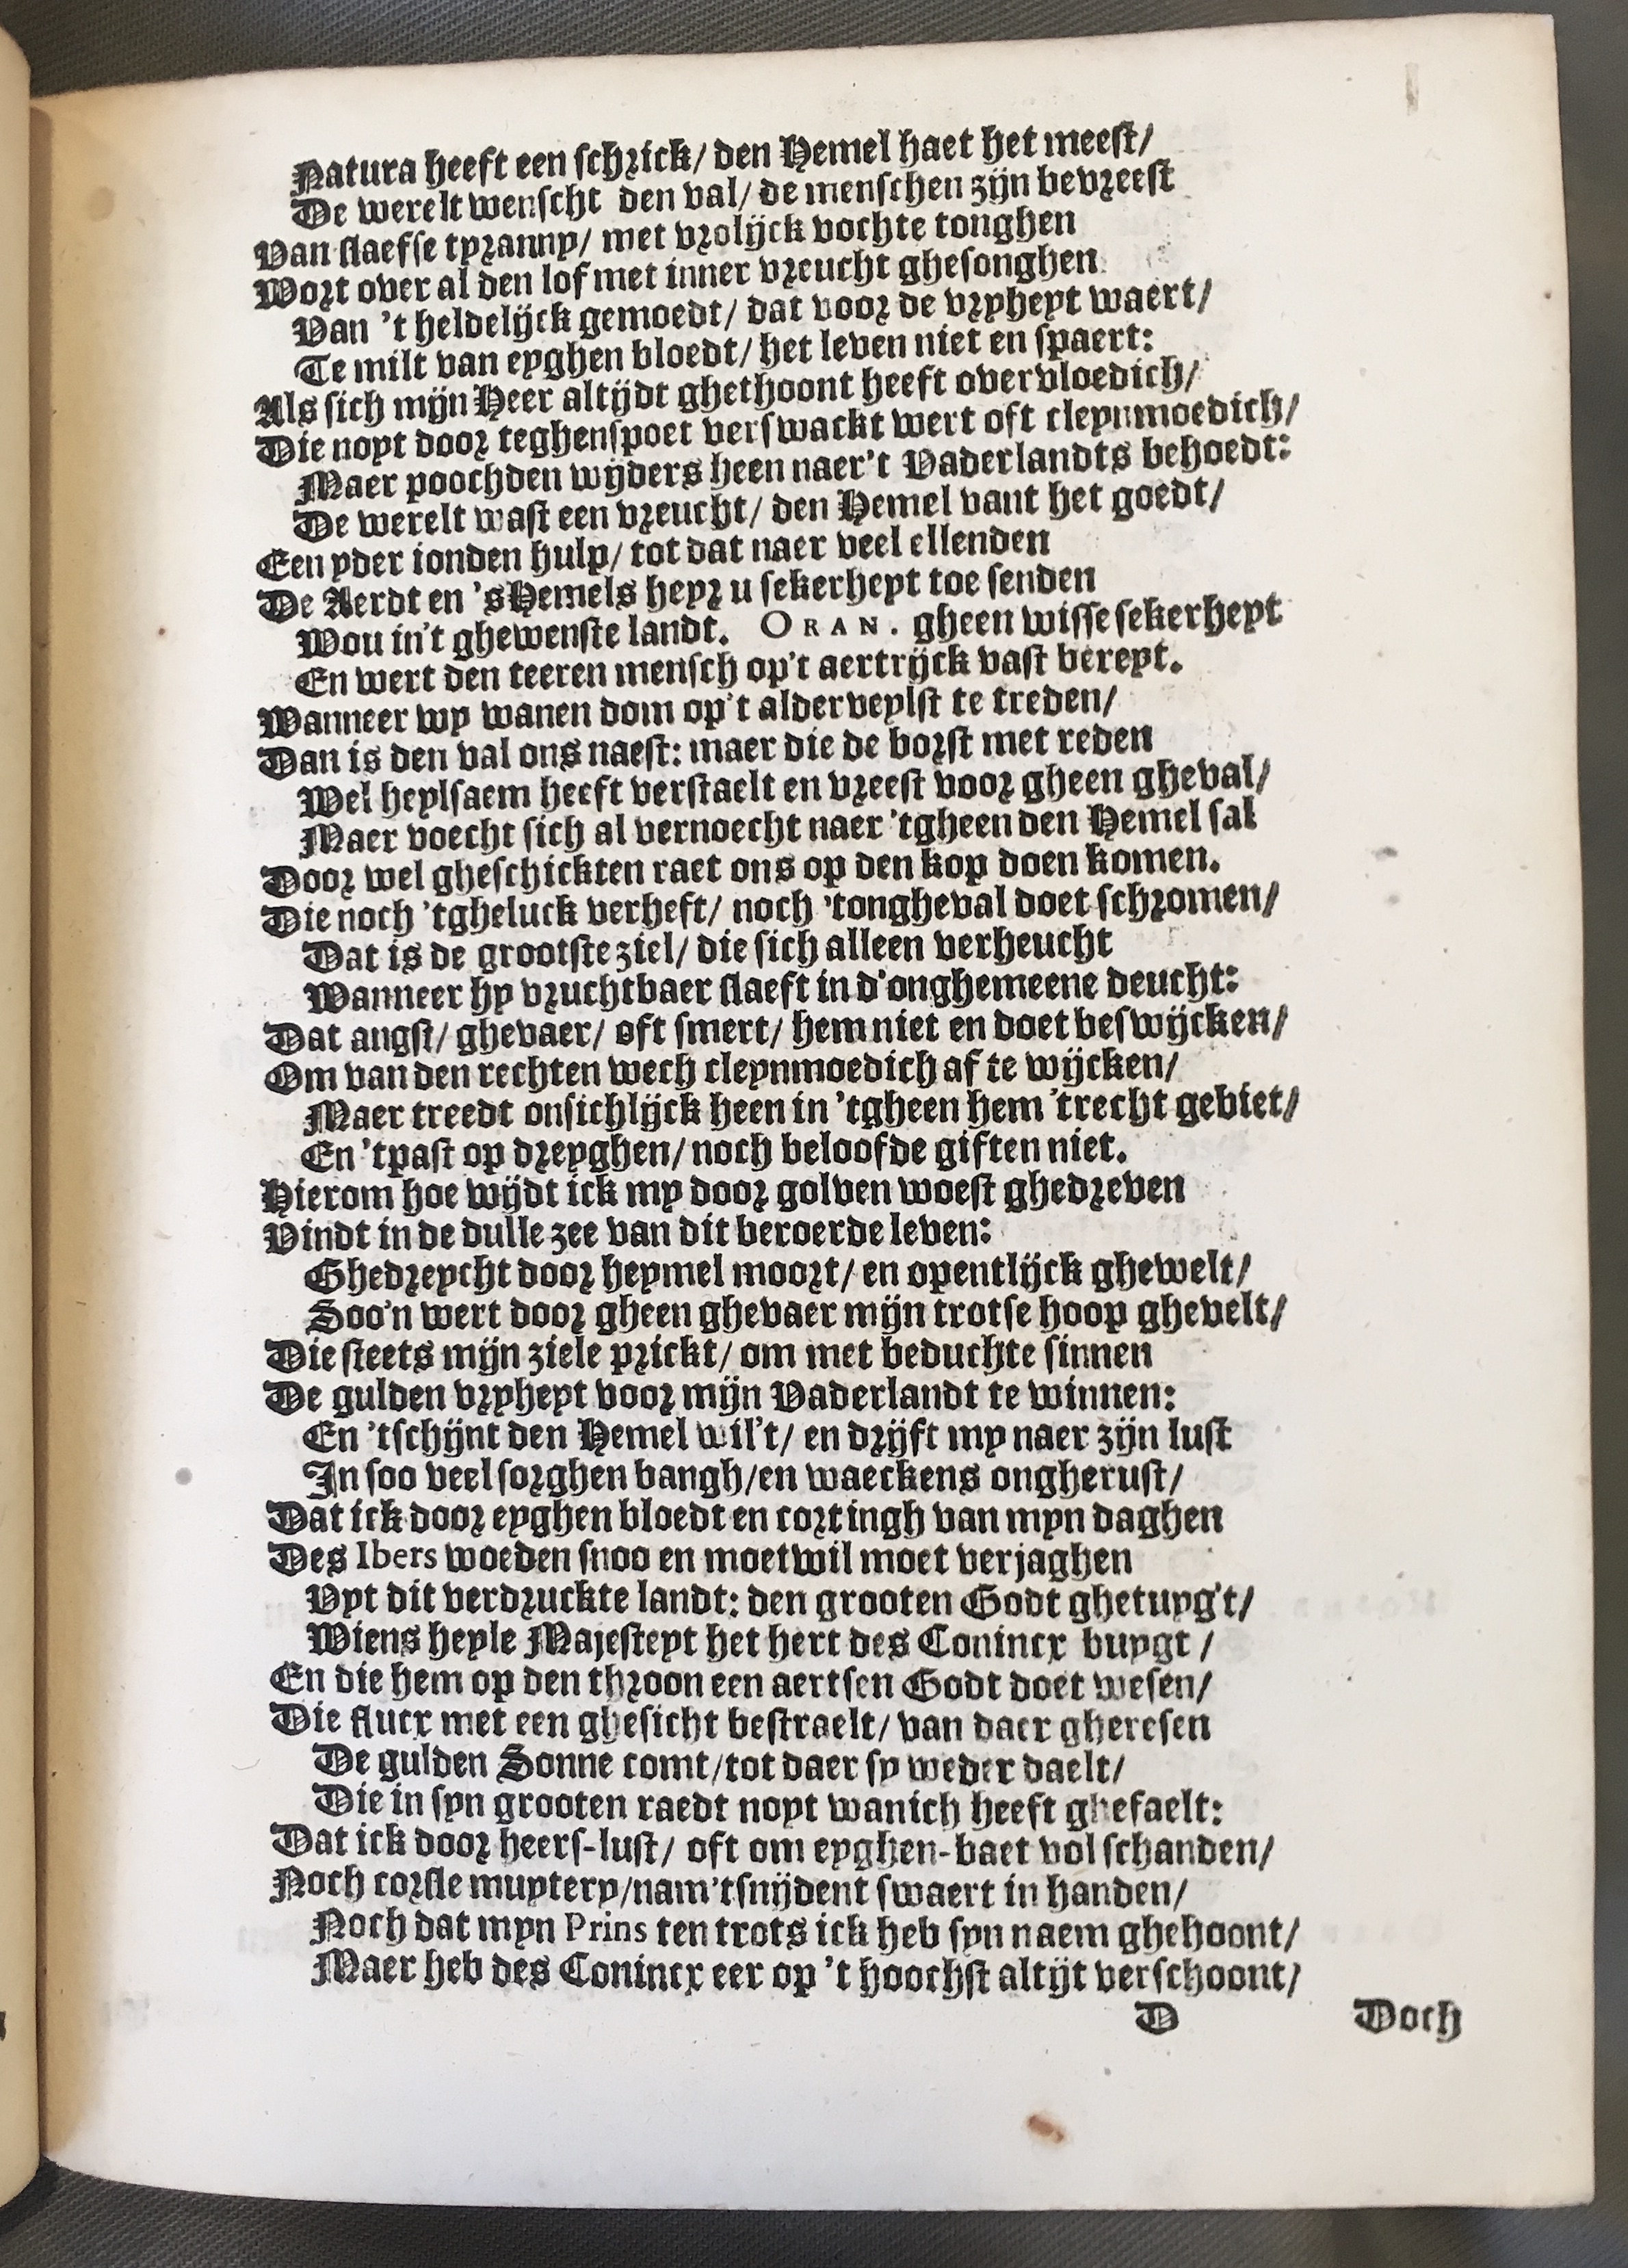 Natura heeft een schrick/ den Hemel haet het meest/
De werelt wenscht den val/ de menschen zijn bevreest
Van slaefse tyranny/ met vrolijck vochte tonghen
Wort over al den lof met inner vreucht ghesonghen
Van 't heldelijck gemoedt/ dat voor de vryheyt waert/
Te milt van eyghen bloedt/ het leven niet en spaert:
Als sich mijn Heer altijdt ghethoont heeft overvloedich/
Die noyt door teghenspoet verswackt wert oft cleynmoedich/
Maer poochden wijders heen naer't Vaderlandts behoedt:
De werelt wast een vreucht/ den Hemel vant het goedt/
Een yder ionden hulp/ tot dat naer veel ellenden
De Aerdt en 'sHemels heyr u sekerheyt toe senden
Wou in't ghewenste landt. ORAN. gheen wisse sekerheyt
En wert den teeren mensch op't aertrijck vast bereyt.
Wanneer wy wanen dom op't alderveylst te treden/
Dan is den val ons naest: maer die de borst met reden
Wel heylsaem heeft verstaelt en vreest voor gheen gheval/
Maer voecht sich al vernoecht naer 'tgheen den Hemel sal
Door wel gheschickten raet ons op den kop doen komen.
Die noch 'tgheluck verheft/ noch 'tongheval doet schromen/
Dat is de grootste ziel/ die sich alleen verheucht
Wanneer hy vruchtbaer slaeft in d'onghemeene deucht:
Dat angst/ ghevaer/ oft smert/ hem niet en doet beswijcken/
Om van den rechten wech cleynmoedich af te wijcken/
Maer treedt onsichlijck heen in 'tgheen hem 'trecht gebiet/
En 'tpast op dreyghen/ noch beloofde giften niet.
Hierom hoe wijdt ick my door golven woest ghedreven
Vindt in de dulle zee van dit beroerde leven:
Ghedreycht door heymel moort/ en opentlijck ghewelt/
Soo'n wert door gheen ghevaer mijn trotse hoop ghevelt/
Die steets mijn ziele prickt/ om met beduchte sinnen
De gulden vryheyt voor mijn Vaderlandt te winnen:
En 'tschijnt den Hemel wil't/ en drijft my naer zijn lust
In soo veel sorghen bangh/en waeckens ongherust/
Dat ick door eyghen bloedt en cortingh van myn daghen
Des Ibers woeden snoo en moetwil moet verjaghen
Vyt dit verdruckte landt: den grooten Godt ghetuyg't/
Wiens heyle Majesteyt het hert des Conincx buygt /
En die hem op den throon een aertsen Godt doet wesen/
Die flucx met een ghesicht bestraelt/ van daer gheresen
De gulden Sonne comt/tot daer sy weder daelt/
Die in syn grooten raedt noyt wanich heeft ghefaelt:
Dat ick door heers-lust/ oft om eyghen-baet vol schanden/
Noch corsle muytery/nam'tsnijdent swaert in handen/
Noch dat myn Prins ten trots ick heb syn naem ghehoont/
Maer heb des Conincx eer op 't hoochst altijt verschoont/
D Doch